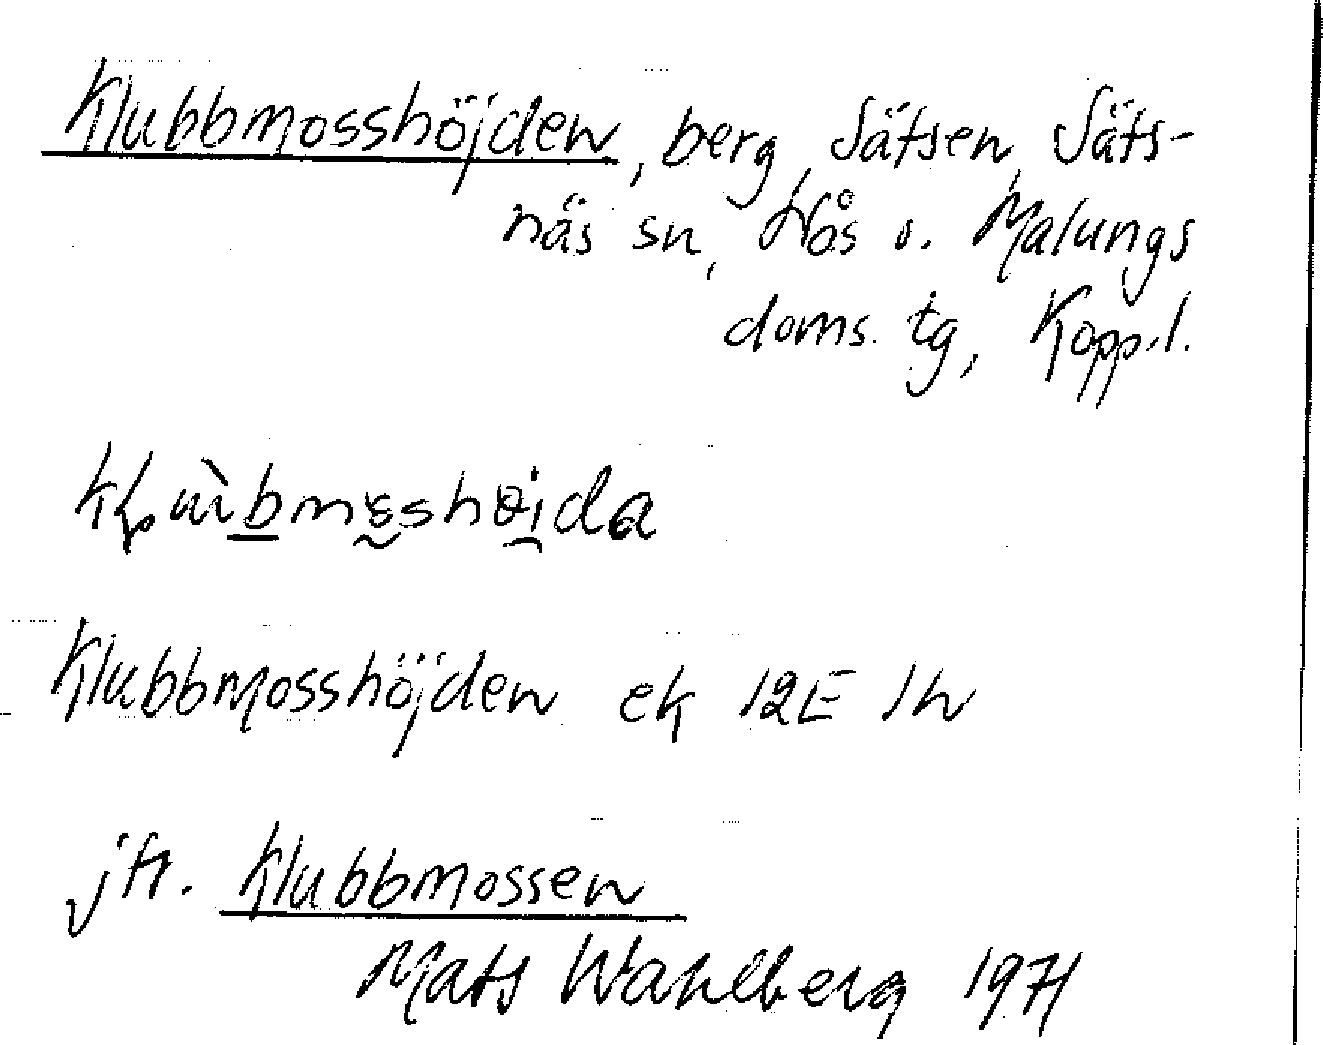 Klubbmosshöjden, berg, Sätsen, Säts-
näs sn, Nås o. Malungs
doms. tg, Kopp. l.
Klubbmosshöjden ek 12E 1h
jfr. Klubbmossen
Mats Wahlberg 1971